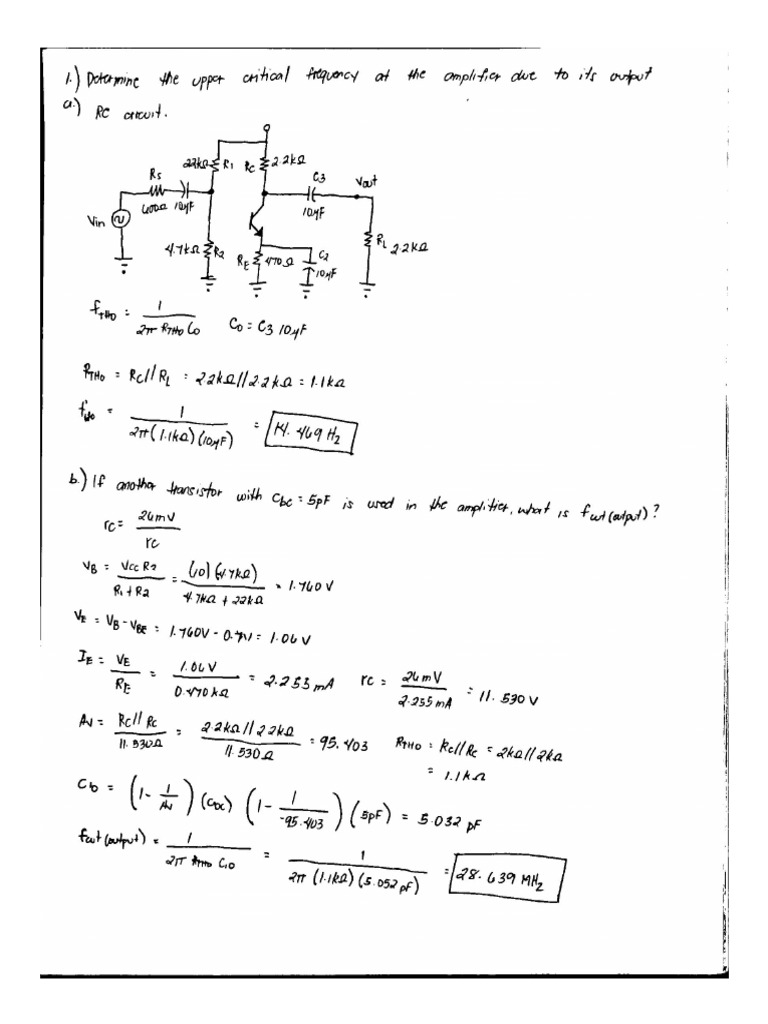 1.) Determine the upper critical frequency at the amplifier due to its output
a.) RC circuit.
22kΩ R1 Rc 2.2kΩ
Rs
C3
Vout
600Ω 10μF
10μF
Vin
4.7kΩ R2
RE 470Ω
C2
10μF
RL 2.2kΩ
fTHO = 1 / 2π RTHO Co
Co = C3 10μF
RTHO = RC//RL = 2.2kΩ//2.2kΩ = 1.1kΩ
= 1 / 2π(1.1kΩ)(10μF) = 14.469 Hz
b.) If another transistor with Cbc = 5pF is used in the amplifier, what is fcut(output)?
rc = 26mV / rc
VB = Vcc R2 / R1 + R2 = (10)(4.7kΩ) / 4.7kΩ + 22kΩ = 1.760V
VE = VB - VBE = 1.760V - 0.7V = 1.06V
IE = VE / RE = 1.06V / 0.470kΩ = 2.255mA rc = 26mV / 2.255mA = 11.530V
AV = RC//RC / 11.530Ω = 2.2kΩ//2.2kΩ / 11.530Ω = 95.403 RTHO = RC//RC = 2kΩ//2kΩ
= 1.1kΩ
= (1 - 1/AV)(CBC) (1 - 1/-95.403)(5pF) = 5.032 pF
fcut(output) = 1 / 2π RTHO C10 = 1 / 2π(1.1kΩ)(5.052pF) = 28.639 MHz